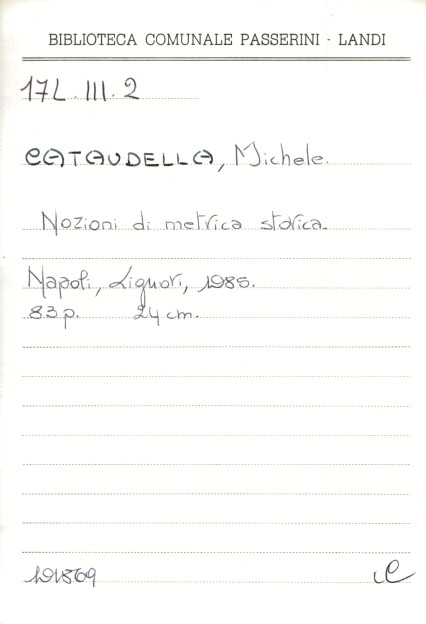 BIBLIOTECA COMUNALE PASSERINI - LANDI
17L.III.2
CATAUDELLA, Michele.
Nozioni di metrica storica.
Napoli, Liguori, 1985.
83 p. 24 cm.